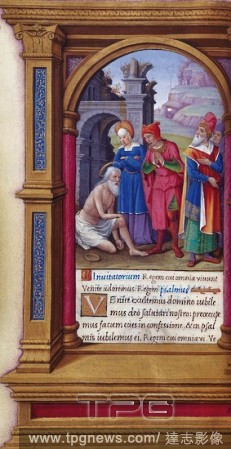 Invitatorum Regem cui omnia vivunt
Venite adoremus. Regem psalmus
Venite exultemus domino iubile
mus deo salutari nostro: preoccupe
mus faciem eius in confessione. & in psal
mis iubilemus ei. Regem cui omnia vi. Ve
TPG
www.tpgnews.com/ 達志影像